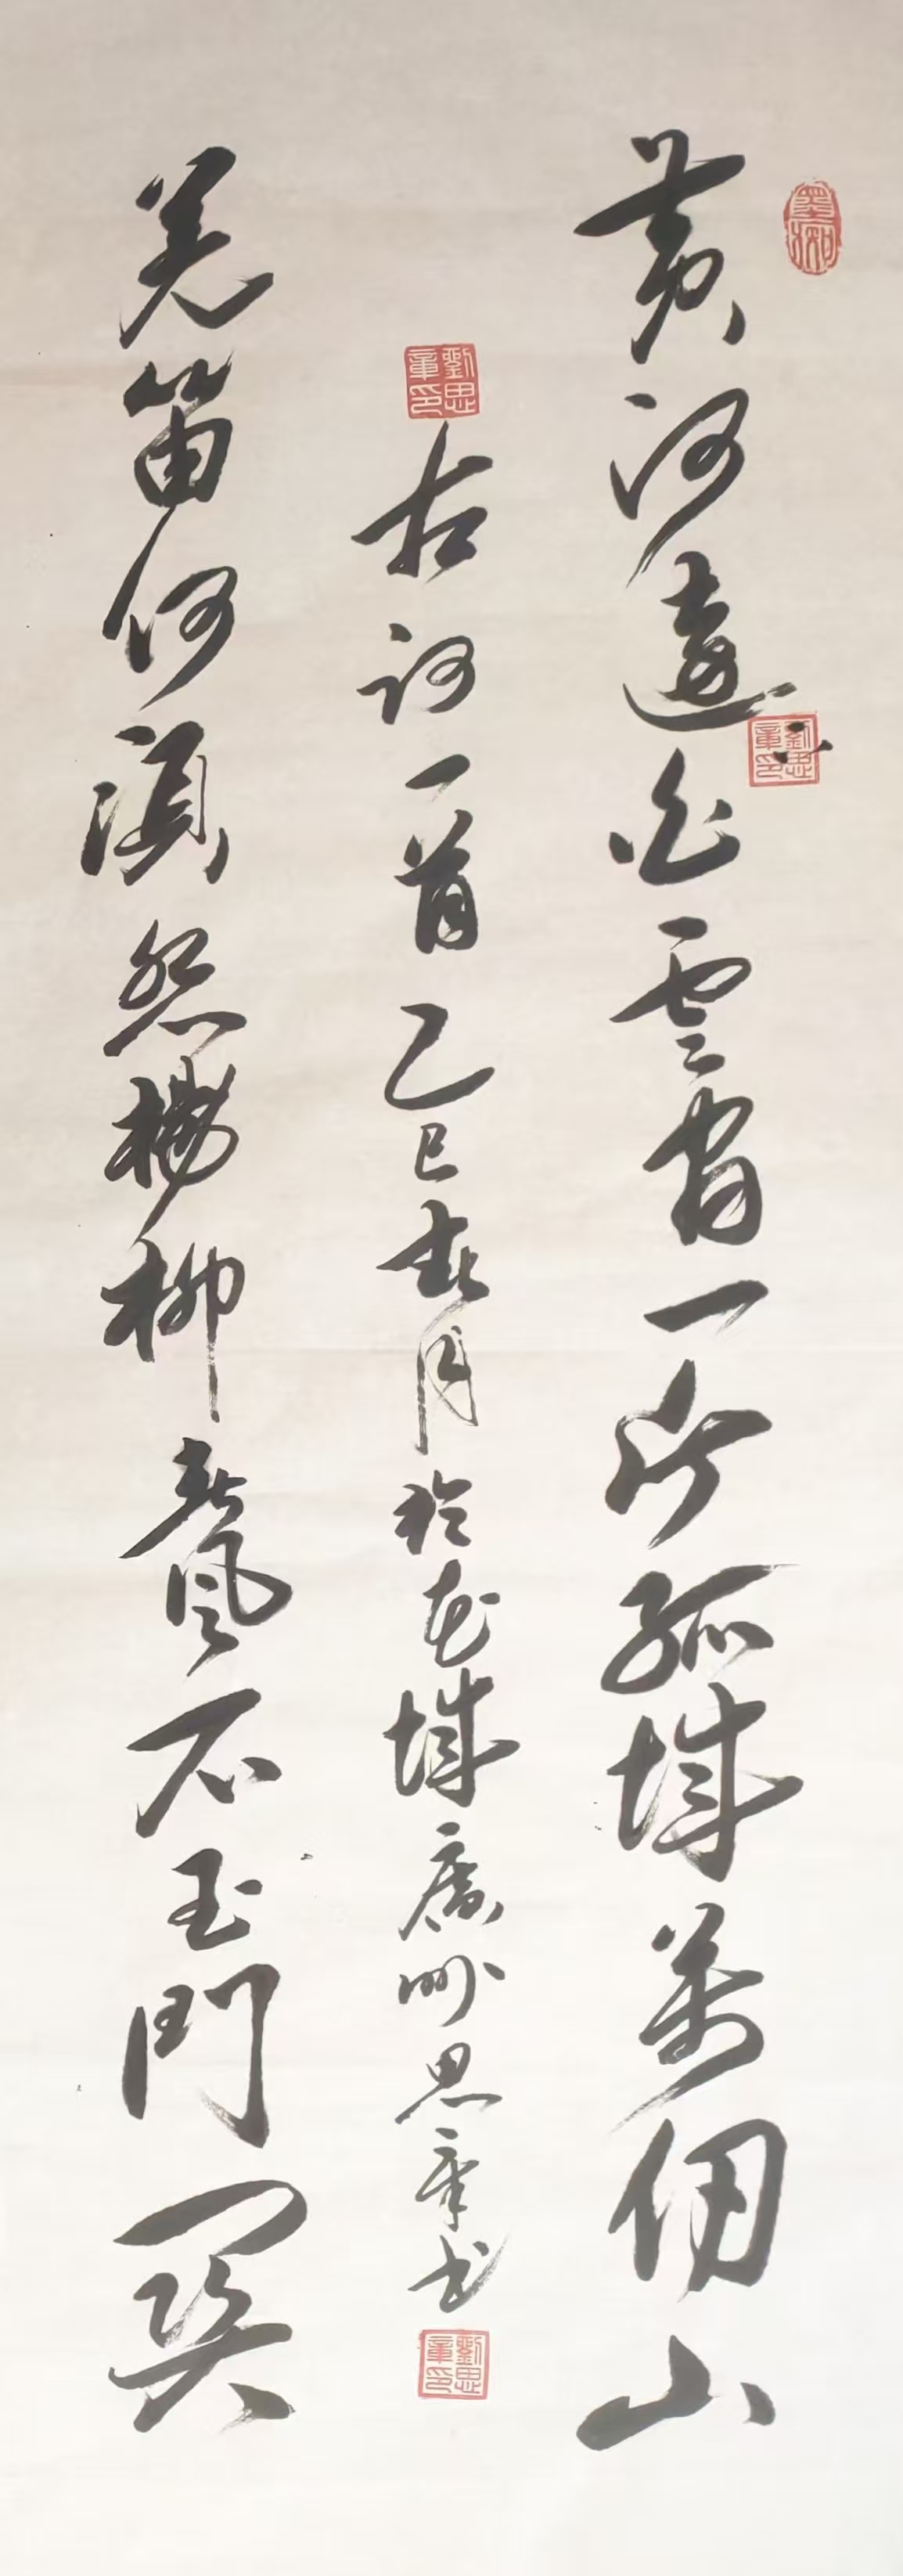 墨痴
黄河遠上白雲間一片孤城萬仞山
劉思章印
劉思章印
古詞一首乙巳春月於花城廣州思章书
劉思章印
羌笛何須怨楊柳春風不玉門關